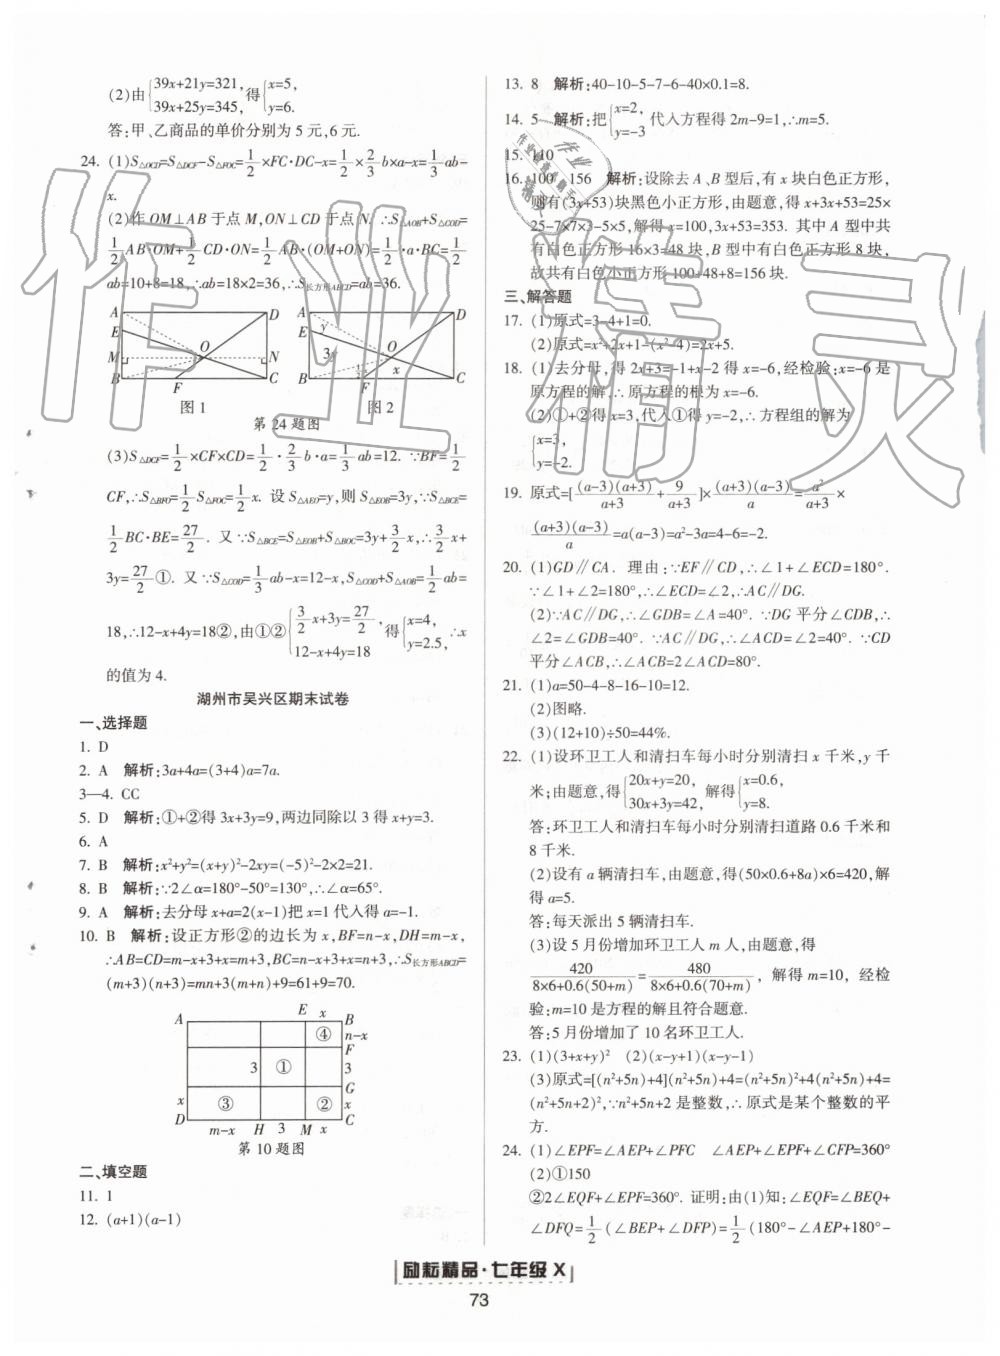 (2)由{39x+21y=321, 39x+25y=345,得{x=5, y=6.
答:甲、乙商品的单价分别为 5 元,6 元.
24. (1)S△OCD=S△DCF-S△FOC=1/2×FC·DC-x=1/2×2/3b×a-x=1/3ab-
x.
(2)作 OM⊥AB 于点 M,ON⊥CD 于点 N. ∴S△AOB+S△COD=
1/2AB·OM+1/2CD·ON=1/2AB·(OM+ON)=1/2·a·BC=1/2
ab=10+8=18,∴ab=18×2=36,∴S长方形ABCD=ab=36.
A D E M O N B F C
图 1
A D E y O 3 x B F C
图 2
第 24 题图
(3)S△DCF=1/2×CF×CD=1/2·2/3b·a=1/3ab=12. ∵BF=1/2
CF,∴S△BFO=1/2S△FOC=1/2x. 设 S△AEO=y,则 S△EOB=3y,∵S△BCE=
1/2BC·BE=27/2. 又∵S△BCE=S△EOB+S△BOC=3y+3/2x,∴3/2x+
3y=27/2①. 又∵S△COD=1/3ab-x=12-x,S△COD+S△AOB=1/2ab=
18,∴12-x+4y=18②,由①②{3/2x+3y=27/2, 12-x+4y=18得{x=4, y=2.5,∴x
的值为 4.
湖州市吴兴区期末试卷
一、选择题
1. D
2. A 解析:3a+4a=(3+4)a=7a.
3—4. CC
5. D 解析:①+②得 3x+3y=9,两边同除以 3 得 x+y=3.
6. A
7. B 解析:x²+y²=(x+y)²-2xy=(-5)²-2×2=21.
8. B 解析:∵2∠α=180°-50°=130°,∴∠α=65°.
9. A 解析:去分母 x+a=2(x-1)把 x=1 代入得 a=-1.
10. B 解析:设正方形②的边长为 x,BF=n-x,DH=m-x,
∴AB=CD=m-x+3+x=m+3,BC=n-x+3+x=n+3,∴S长方形ABCD=
(m+3)(n+3)=mn+3(m+n)+9=61+9=70.
A E x B
④ n-x
F
3 ① 3
G
x ③ ② x
D m-x H 3 M x C
第 10 题图
二、填空题
11. 1
12. (a+1)(a-1)
13. 8 解析:40-10-5-7-6-40×0.1=8.
14. 5 解析:把{x=2, y=-3代入方程得 2m-9=1,∴m=5.
15. 110
16. 100 156 解析:设除去 A、B 型后,有 x 块白色正方形,
则有(3x+53)块黑色小正方形,由题意,得 x+3x+53=25×
25-7×7×3-5×5,解得 x=100,3x+53=353. 其中 A 型中共
有白色正方形 16×3=48 块,B 型中有白色正方形 8 块,
故共有白色小正方形 100+48+8=156 块.
三、解答题
17. (1)原式=3-4+1=0.
(2)原式=x²+2x+1-(x²-4)=2x+5.
18. (1)去分母,得 2x+3=-1+x-2 得 x=-6,经检验:x=-6 是
原方程的解,∴原方程的根为 x=-6.
(2)①+②得 x=3,代入①得 y=-2,∴方程组的解为
{x=3, y=-2.
19. 原式=[(a-3)(a+3)/(a+3)+9/(a+3)]×(a+3)(a-3)/a=a²/(a+3)×
(a+3)(a-3)/a=a(a-3)=a²-3a=4-6=-2.
20. (1)GD∥CA. 理由:∵EF∥CD,∴∠1+∠ECD=180°.
∵∠1+∠2=180°,∴∠ECD=∠2,∴AC∥DG.
(2)∵AC∥DG,∴∠GDB=∠A=40°. ∵DG 平分∠CDB,∴
∠2=∠GDB=40°. ∵AC∥DG,∴∠ACD=∠2=40°. ∵CD
平分∠ACB,∴∠ACB=2∠ACD=80°.
21. (1)a=50-4-8-16-10=12.
(2)图略.
(3)(12+10)÷50=44%.
22. (1)设环卫工人和清扫车每小时分别清扫 x 千米,y 千
米;由题意,得{20x+y=20, 30x+3y=42,解得{x=0.6, y=8.
答:环卫工人和清扫车每小时分别清扫道路 0.6 千米和
8 千米.
(2)设有 a 辆清扫车,由题意,得(50×0.6+8a)×6=420,解
得 a=5.
答:每天派出 5 辆清扫车.
(3)设 5 月份增加环卫工人 m 人,由题意,得
420/(8×6+0.6(50+m))=480/(8×6+0.6(70+m)),解得 m=10,经检
验:m=10 是方程的解且符合题意.
答:5 月份增加了 10 名环卫工人.
23. (1)(3+x+y)² (2)(x-y+1)(x-y-1)
(3)原式=[(n²+5n)+4](n²+5n+4)+4=(n²+5n)²+4(n²+5n)+4=
(n²+5n+2)²,∵n²+5n+2 是整数,∴原式是某个整数的平
方.
24. (1)∠EPF=∠AEP+∠PFC ∠AEP+∠EPF+∠CFP=360°
(2)①150
②2∠EQF+∠EPF=360°. 证明:由(1)知:∠EQF=∠BEQ+
∠DFQ=1/2(∠BEP+∠DFP)=1/2(180°-∠AEP+180°-
励耘精品·七年级 X
73
作业精灵